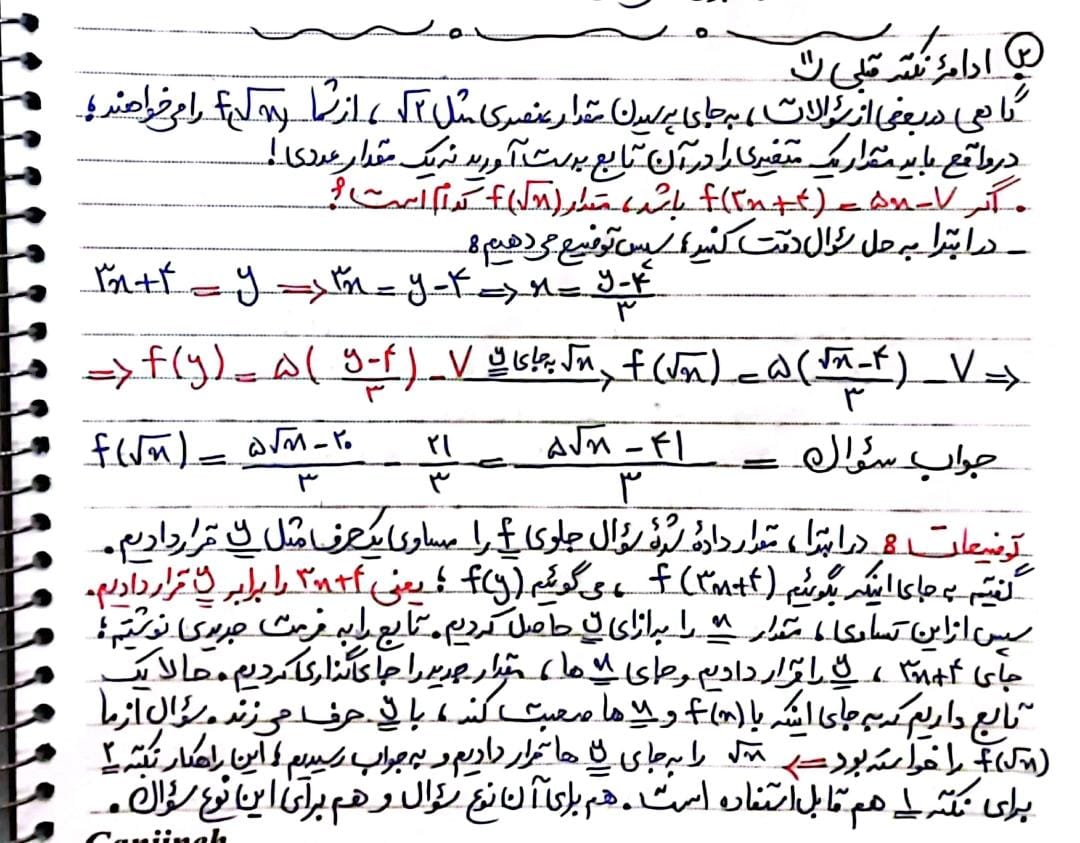 ۲ ادامهٔ نکته قبلی :
گاهی در بعضی از سؤالات، به جای پرسیدن مقدار عنصری مثل √۲، از شما f(√x) را می‌خواهند؛
در واقع باید مقدار یک متغیری را در آن تابع بدست آورید نه یک مقدار عددی!
. اگر f(۳x+۴) = ۵x-۷ باشد، مقدار f(√x) کدام است؟
- در ابتدا به حل سؤال دقت کنید؛ سپس توضیح می‌دهیم:
۳x+۴ = y ⇒ ۳x = y-۴ ⇒ x = (y-۴)/۳
⇒ f(y) = ۵((y-۴)/۳) - ۷ √x به جای y → f(√x) = ۵((√x-۴)/۳) - ۷ ⇒
f(√x) = (۵√x-۲۰)/۳ - ۲۱/۳ = (۵√x-۴۱)/۳ = جواب سؤال
توضیحات : در ابتدا، مقدار دادهٔ شدهٔ سؤال جلوی f را مساوی یک حرف مثل y قرار دادیم.
گفتیم به جای اینکه بگوئیم f(۳x+۴)، می‌گوئیم f(y)؛ یعنی ۳x+۴ را برابر y قرار دادیم.
سپس از این تساوی، مقدار x را به ازای y حاصل کردیم. تابع را به فرمت جدیدی نوشتیم؛
جای ۳x+۴، y را قرار دادیم و جای x ها، مقدار جدید را جای‌گذاری کردیم. حالا یک
تابع داریم که به جای اینکه با f(x) و x ها صحبت کند، با y حرف می‌زند. سؤال از ما
f(√x) را خواسته بود ⇒ √x را به جای y ها قرار دادیم و به جواب رسیدیم؛ این راهکار نکته ۲
برای نکته ۱ هم قابل استفاده است. هم برای آن نوع سؤال و هم برای این نوع سؤال.